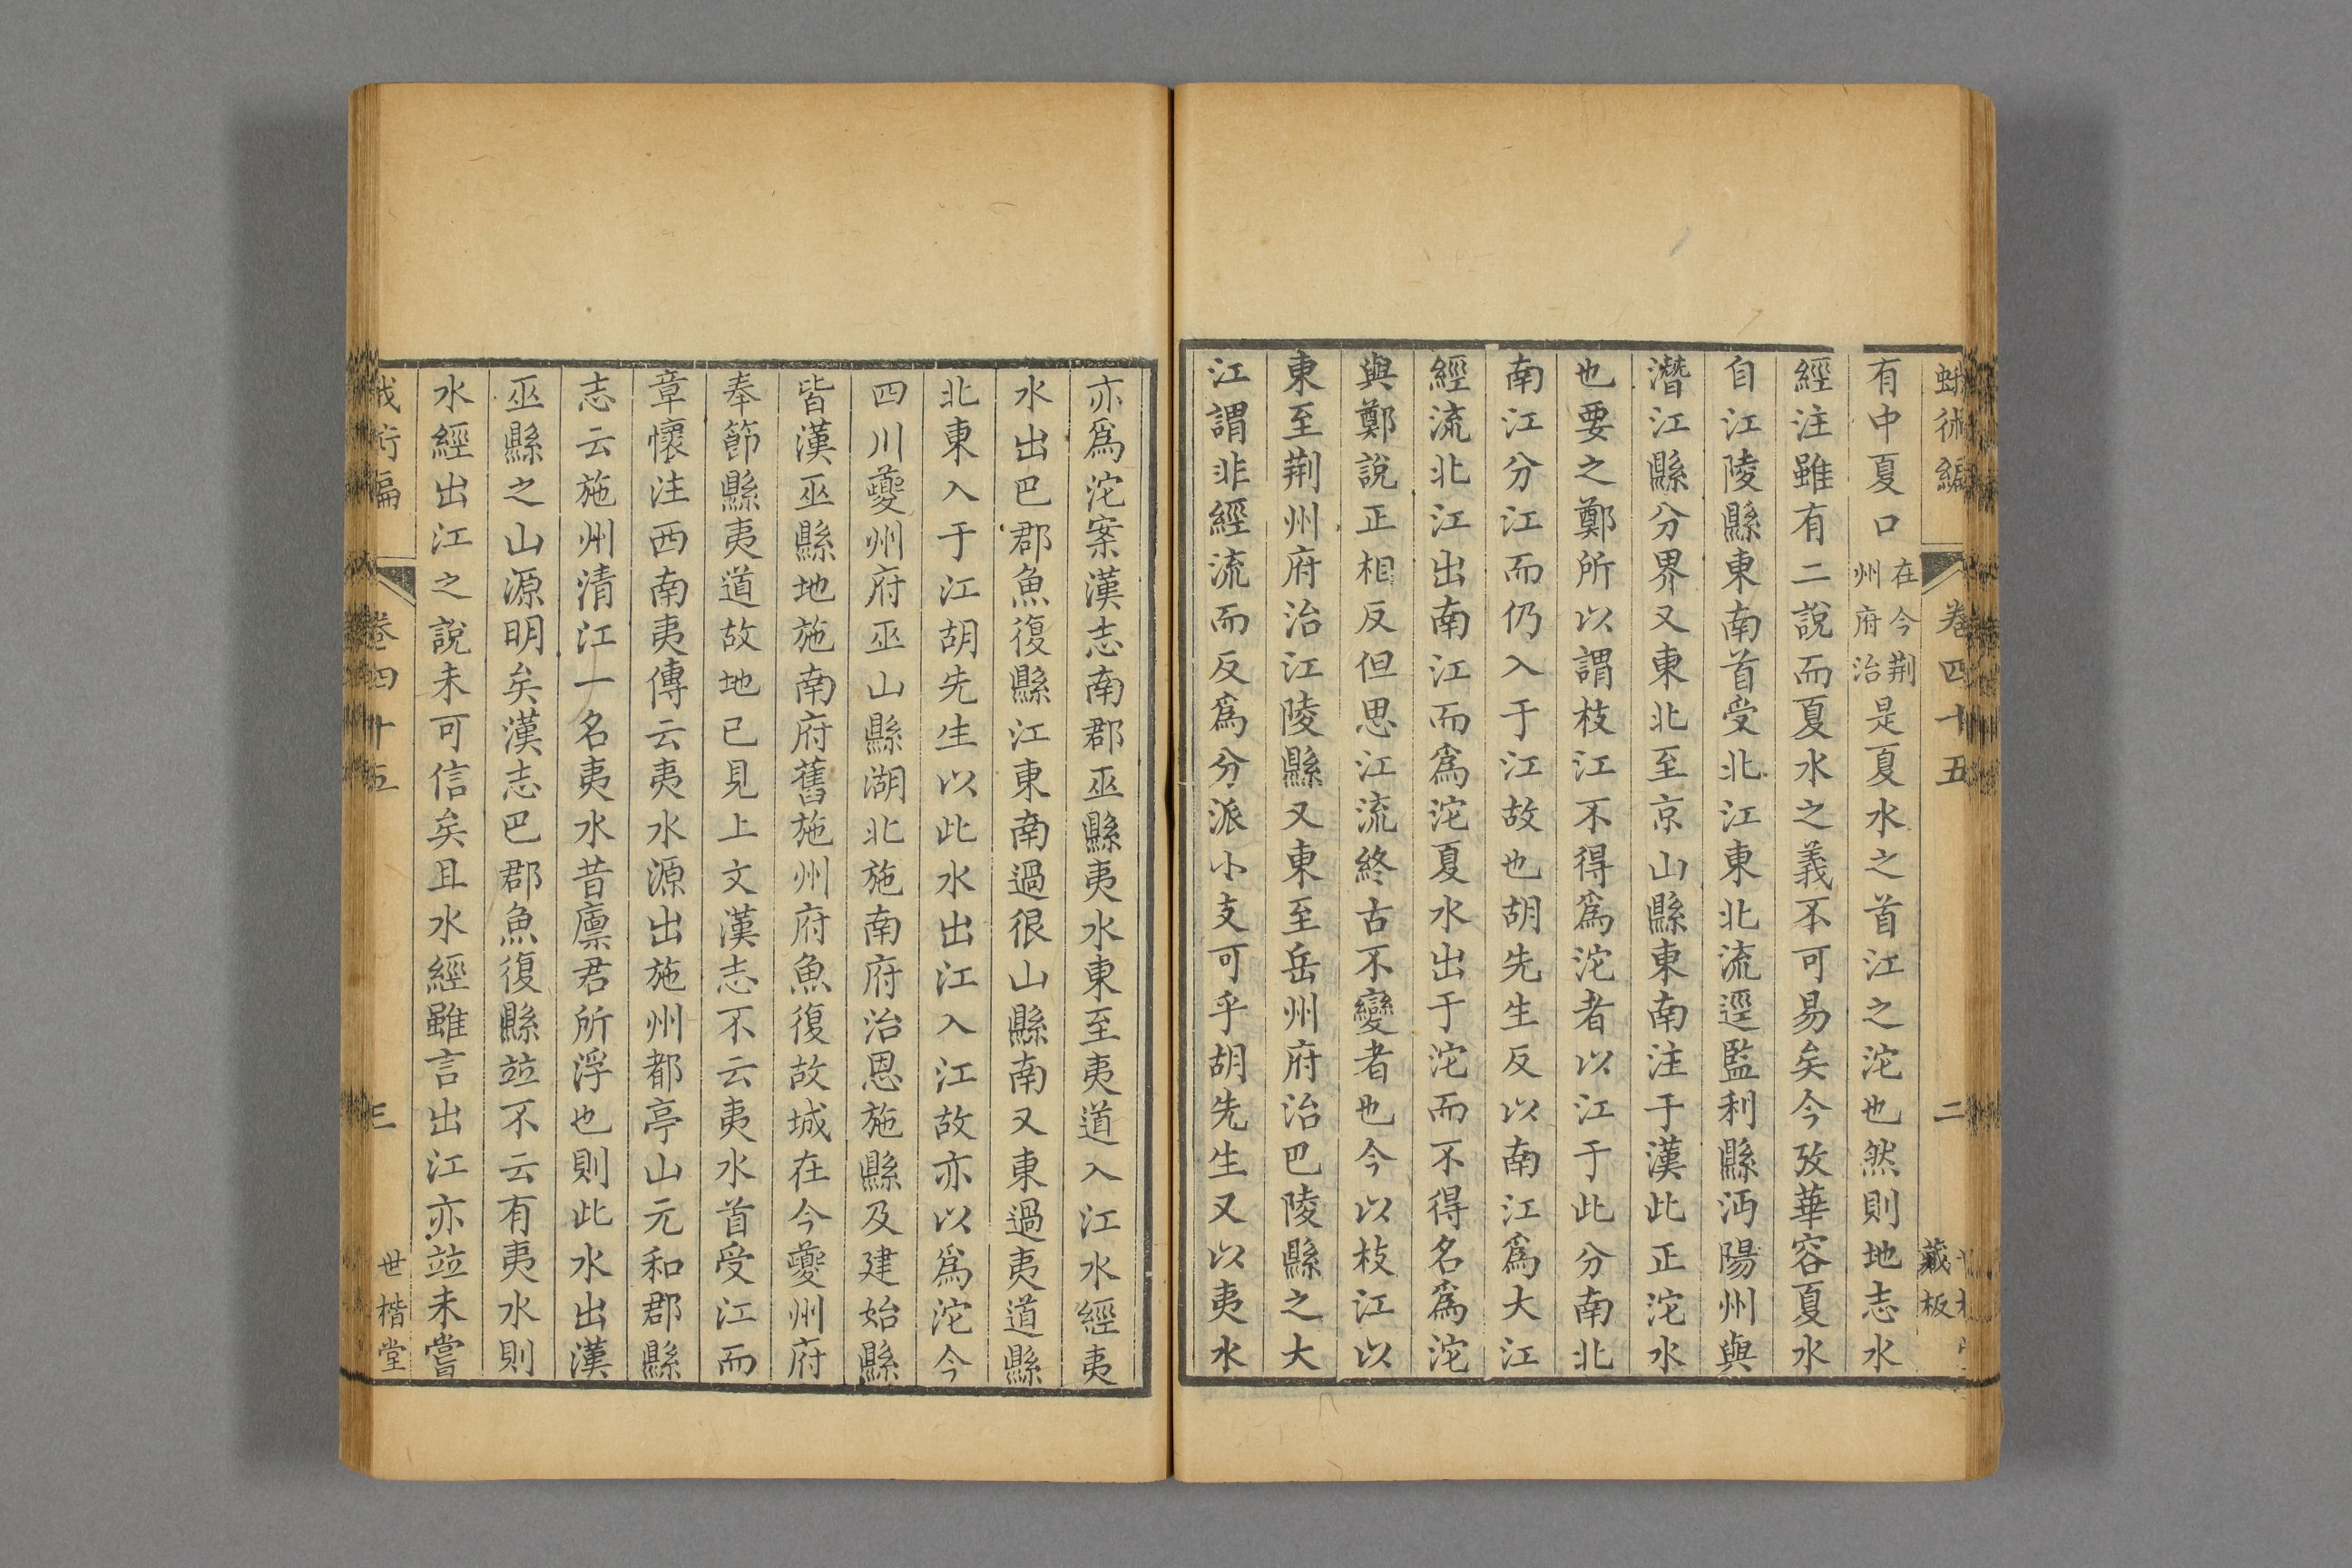 蛾術編
卷四十五
二
藏板
有中夏口在今荆州府治是夏水之首江之沱也然則地志水
經注雖有二說而夏水之義不可易矣今攷華容夏水
自江陵縣東南首受北江東北流逕監利縣沔陽州與
潛江縣分界又東北至京山縣東南注于漢此正沱水
也要之鄭所以謂枝江不得爲沱者以江于此分南北
南江分江而仍入于江故也胡先生反以南江爲大江
經流北江出南江而爲沱夏水出于沱而不得名爲沱
與鄭說正相反但思江流終古不變者也今以枝江以
東至荆州府治江陵縣又東至岳州府治巴陵縣之大
江謂非經流而反爲分派小支可乎胡先生又以夷水
亦爲沱案漢志南郡巫縣夷水東至夷道入江水經夷
水出巴郡魚復縣江東南過很山縣南又東過夷道縣
北東入于江胡先生以此水出江入江故亦以爲沱今
四川夔州府巫山縣湖北施南府治恩施縣及建始縣
皆漢巫縣地施南府舊施州府魚復故城在今夔州府
奉節縣夷道故地已見上文漢志不云夷水首受江而
章懷注西南夷傳云夷水源出施州都亭山元和郡縣
志云施州清江一名夷水昔廪君所浮也則此水出漢
巫縣之山源明矣漢志巴郡魚復縣竝不云有夷水則
水經出江之說未可信矣且水經雖言出江亦竝未嘗
蛾術編
卷四十五
三
世楷堂